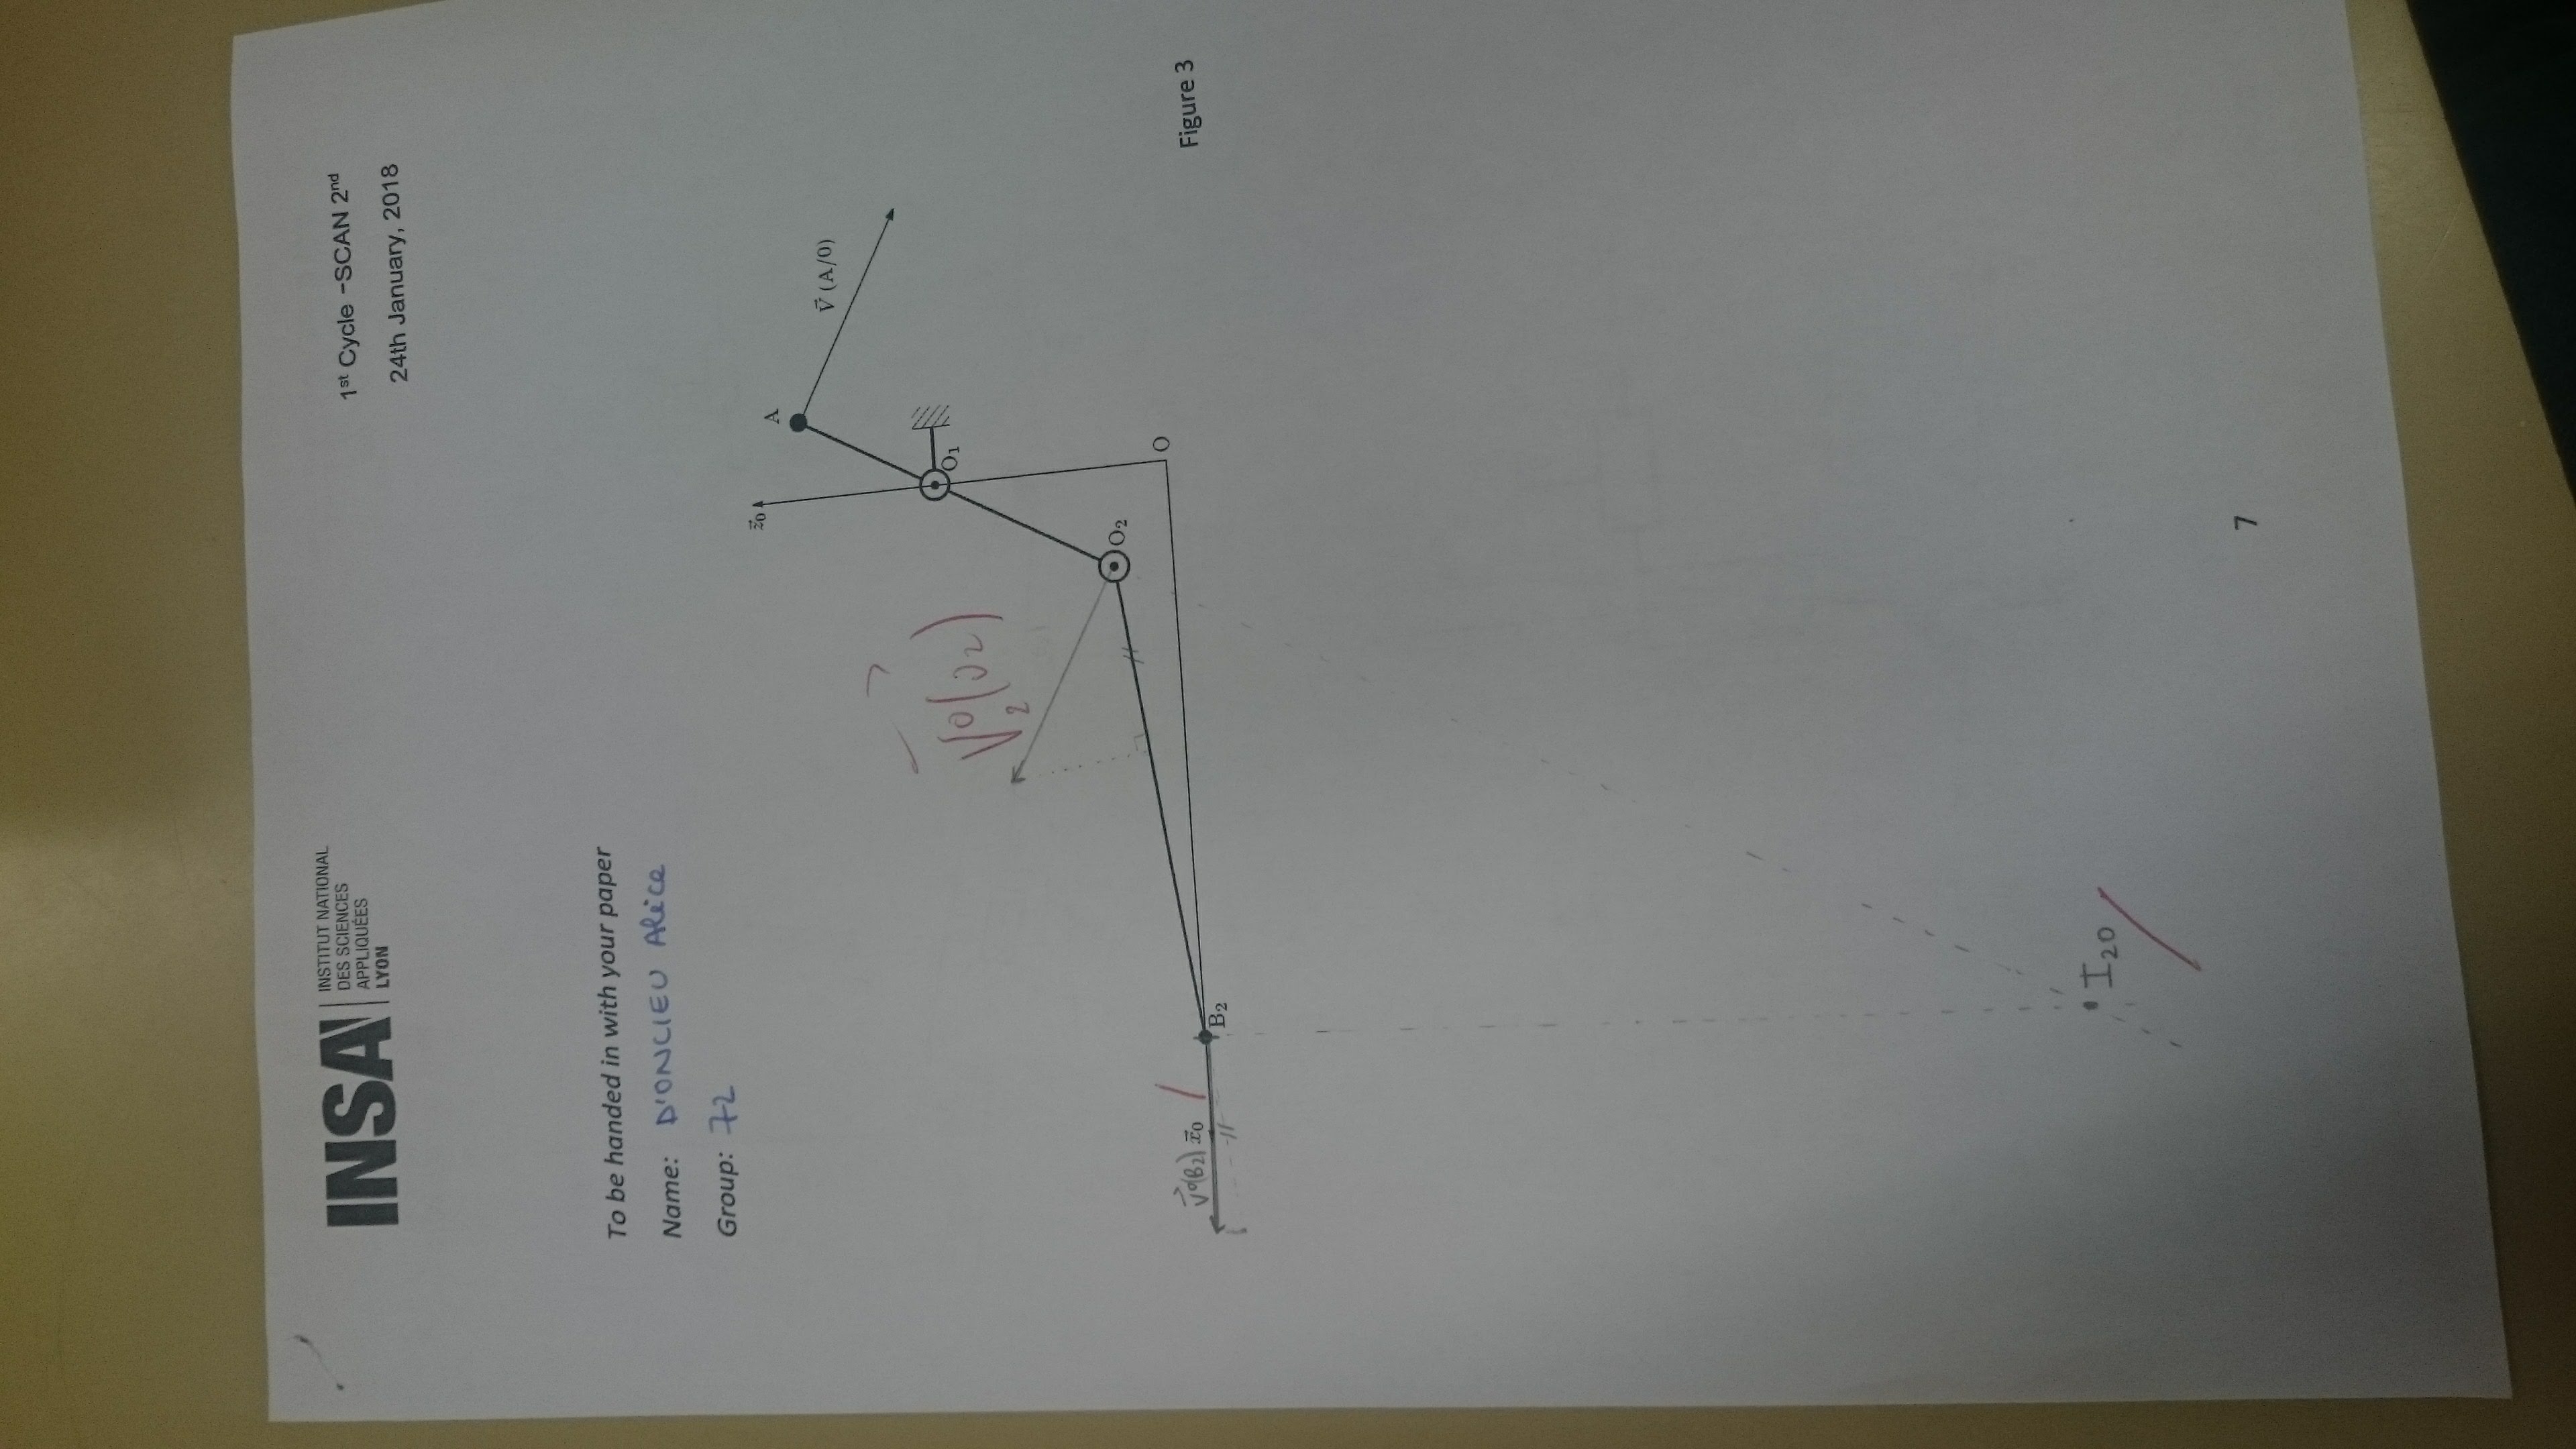 INSA INSTITUT NATIONAL
DES SCIENCES
APPLIQUÉES
LYON
1st Cycle -SCAN 2nd
24th January, 2018
To be handed in with your paper
Name: D'ONCIEU Alice
Group: 72
z⃗0
A
V⃗ (A/0)
O1
V⃗2^0(O2)
O2
O
V⃗^0(B2) x⃗0
B2
Figure 3
I20
7